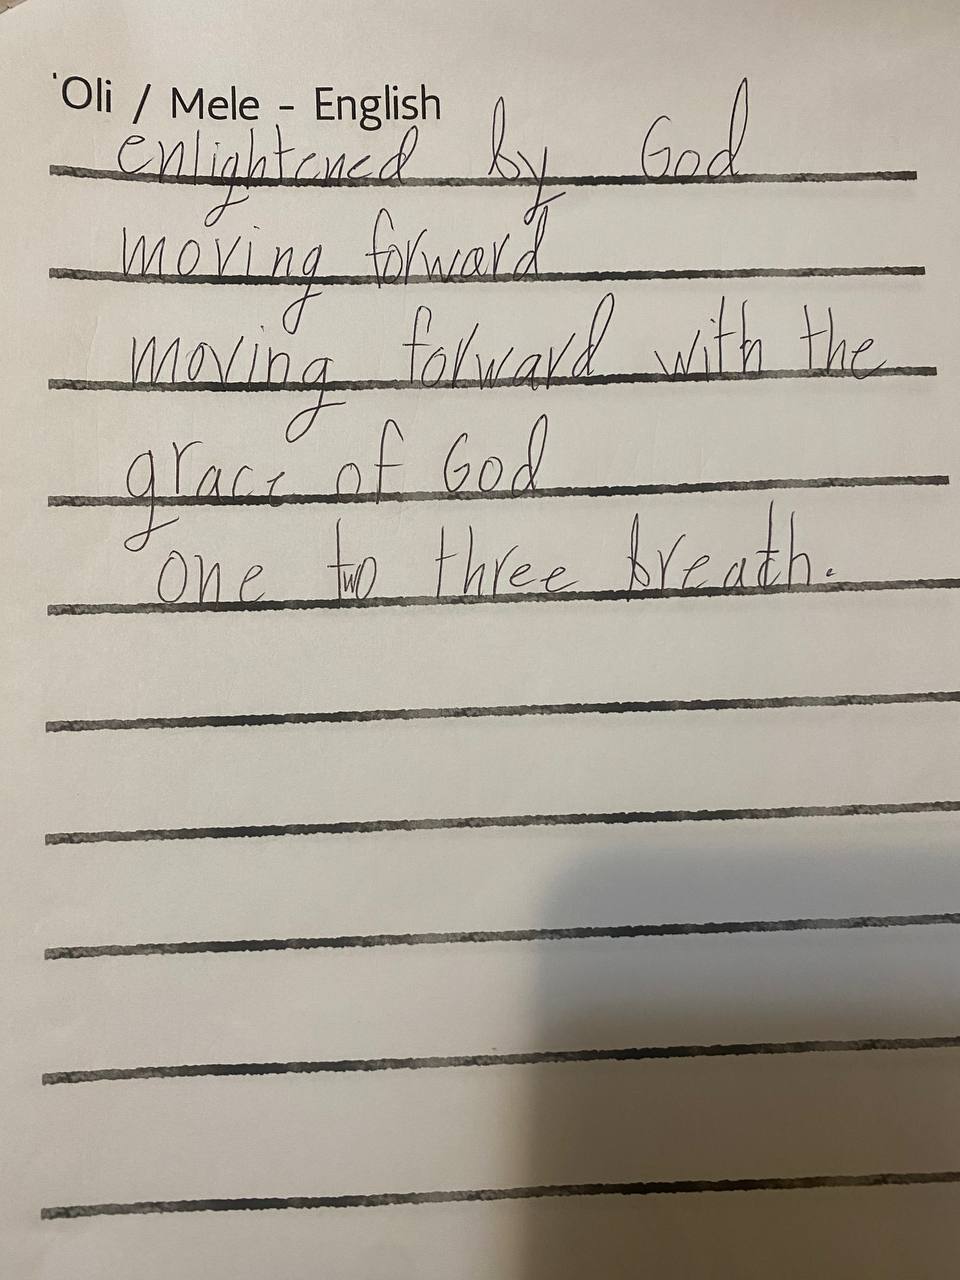 'Oli / Mele - English
enlightened by God
moving forward
moving forward with the
grace of God
one two three breath.